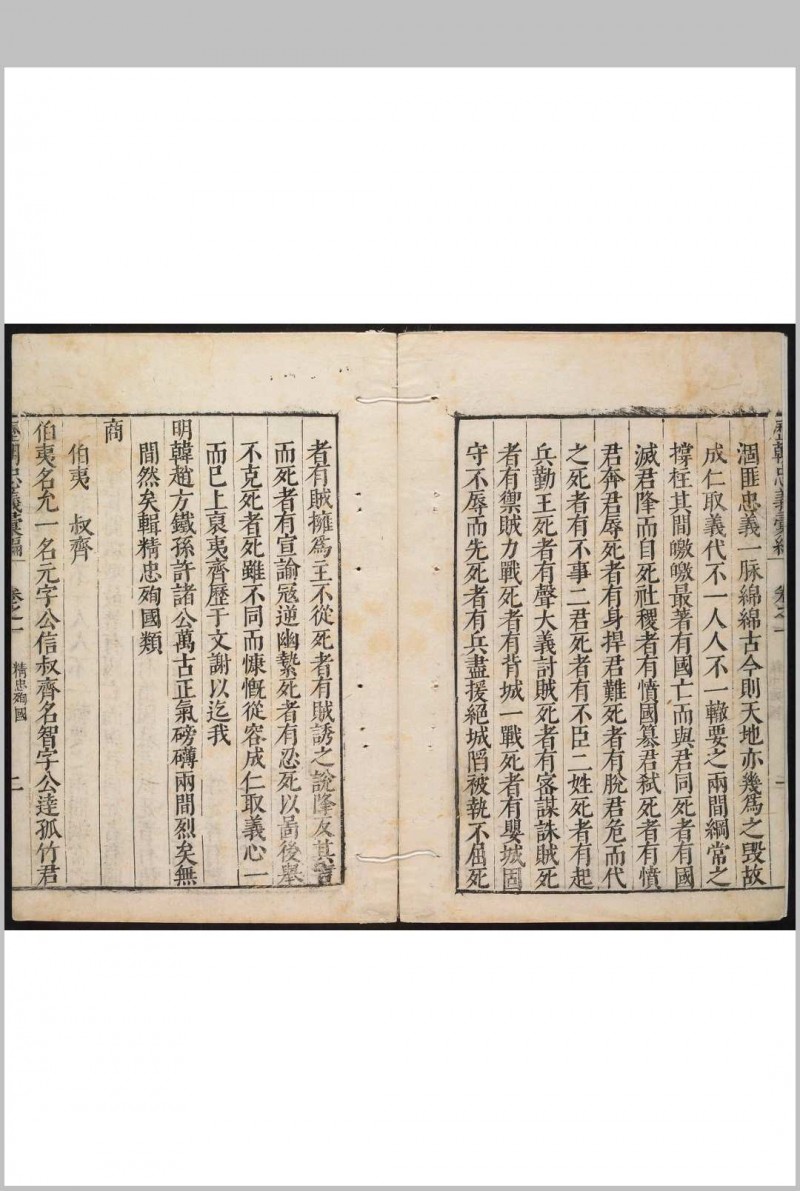 歷朝忠義彙編 卷之一 一
涸匪忠義一脉綿綿古今則天地亦幾爲之毀故
成仁取義代不一人人不一轍要之兩間綱常之
撐柱其間皦皦最著有國亡而與君同死者有國
滅君降而自死社稷者有憤國簒君弑死者有憤
君奔君辱死者有身捍君難死者有脫君危而代
之死者有不事二君死者有不臣二姓死者有起
兵勤王死者有聲大義討賊死者有密謀誅賊死
者有禦賊力戰死者有背城一戰死者有嬰城固
守不辱而先死者有兵盡援絕城陷被執不屈死
者有賊擁爲王不從死者有賊誘之說降反其言
而死者有宣諭寇逆幽縶死者有忍死以啚後舉
不克死者死雖不同而慷慨從容成仁取義心一
而已上裒夷齊歷于文謝以迄我
明韓趙方鐵孫許諸公萬古正氣磅礡兩間烈矣無
間然矣輯精忠殉國類
商
伯夷 叔齊
伯夷名允一名元字公信叔齊名智字公達孤竹君
歷朝忠義彙編 卷之一 精忠殉國 二